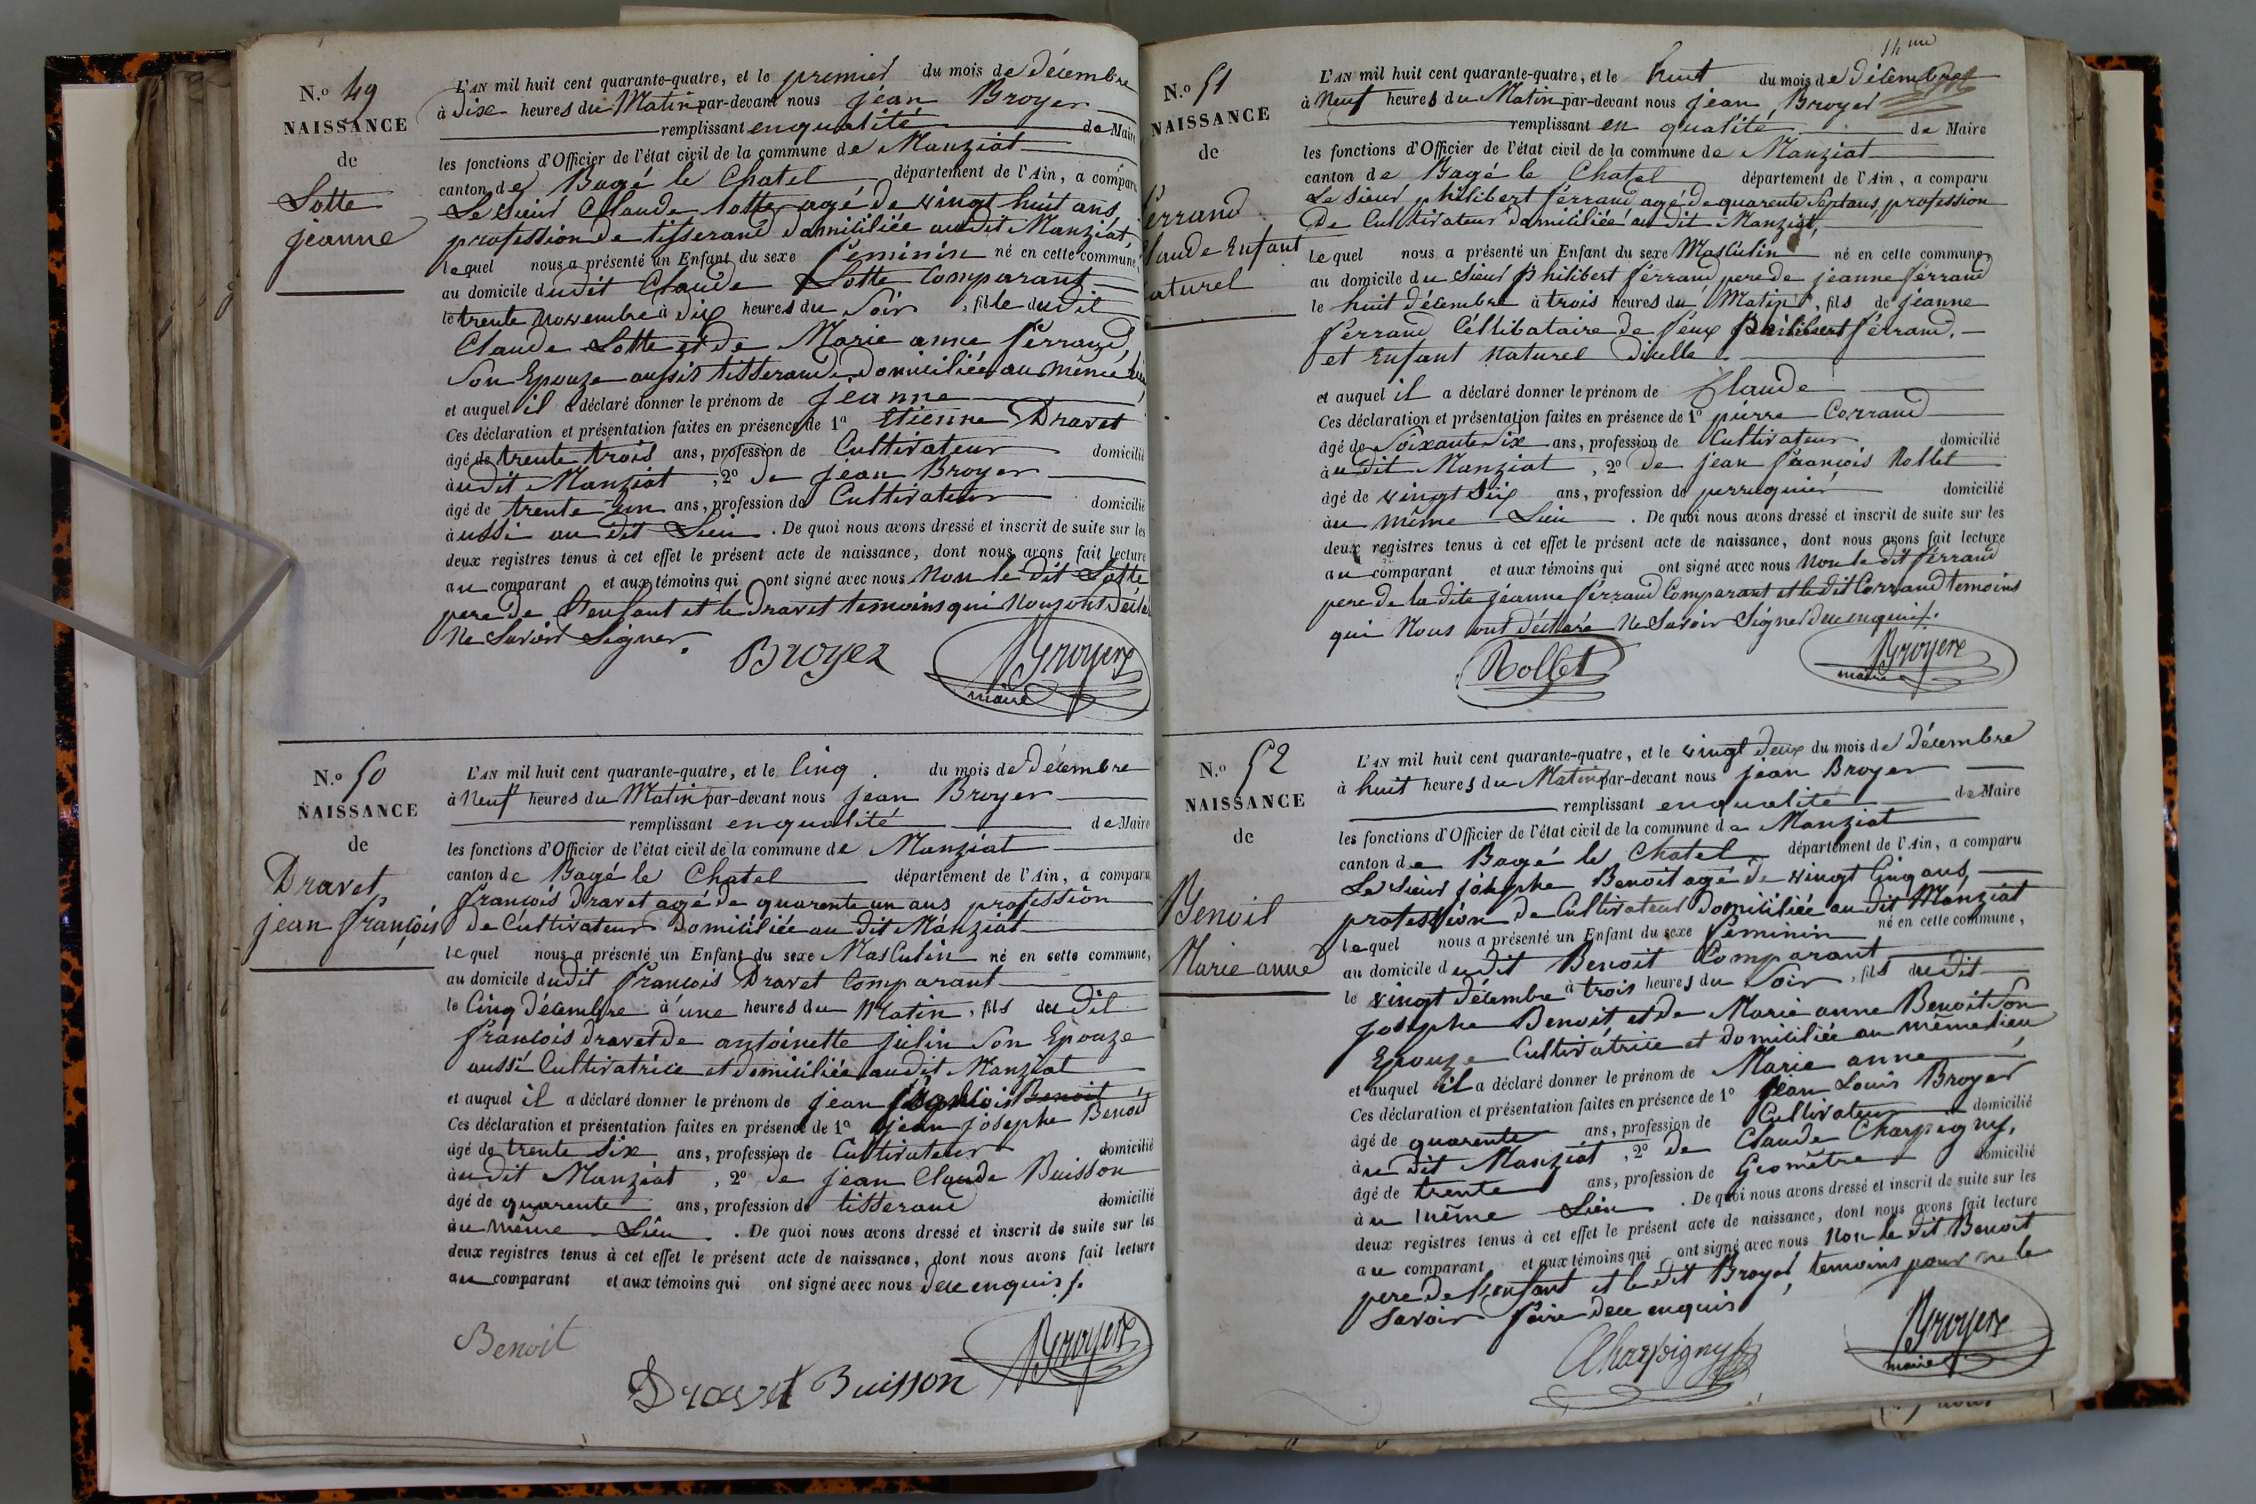 N.o 49
NAISSANCE
de
Lotte
jeanne
L'AN mil huit cent quarante-quatre, et le premier du mois de décembre
à dix heures du Matin par-devant nous jean Broyer
remplissant en qualité de Maire
les fonctions d'Officier de l'état civil de la commune de Manziat
canton de Bagé le Chatel département de l'Ain, a comparu
Le sieur Claude Lotte agé de vingt huit ans
profession de tisserand domiciliée au dit Manziat,
lequel nous a présenté un Enfant du sexe féminin né en cette commune,
au domicile dudit Claude Lotte Comparant
le trente novembre à dix heures du Soir, fille dudit
Claude Lotte et de Marie anne ferrand
Son Epouze aussis tisserande domiciliée au même lieu
et auquel il a déclaré donner le prénom de jeanne
Ces déclaration et présentation faites en présence de 1º Etienne Dravet
âgé de trente trois ans, profession de Cultivateur domicilié
àudit Manziat, 2º de jean Broyer
âgé de trente un ans, profession de Cultivateur domicilié
àussi au dit Lieu. De quoi nous avons dressé et inscrit de suite sur les
deux registres tenus à cet effet le présent acte de naissance, dont nous avons fait lecture
au comparant et aux témoins qui ont signé avec nous Non le dit Lotte
pere de l'enfant et le Dravet temoins qui nous ont déclaré
Ne Savoir Signer.
Broyer
Broyer
maire
N.o 50
NAISSANCE
de
Dravet
jean françois
L'AN mil huit cent quarante-quatre, et le Cinq du mois de décembre
à Neuf heures du Matin par-devant nous jean Broyer
remplissant en qualité de Maire
les fonctions d'Officier de l'état civil de la commune de Manziat
canton de Bagé le Chatel département de l'Ain, a comparu
françois dravet agé de quarente un ans profession
de Cultivateur Domiciliée au dit Manziat
lequel nous a présenté un Enfant du sexe Masculin né en cette commune,
au domicile dudit françois Dravet Comparant
le Cinq décembre à une heures du Matin, fils du dit
françois dravet de antoinette julin Son Epouze
aussi Cultivatrice et domiciliée audit Manziat
et auquel il a déclaré donner le prénom de jean françois Benoit
Ces déclaration et présentation faites en présence de 1º jean josephe Benoit
âgé de trente six ans, profession de Cultivateur domicilié
àudit Manziat, 2º de jean Claude Buisson
âgé de quarente ans, profession de tisserand domicilié
àu même Lieu. De quoi nous avons dressé et inscrit de suite sur les
deux registres tenus à cet effet le présent acte de naissance, dont nous avons fait lecture
au comparant et aux témoins qui ont signé avec nous dece enquis
Benoit
Dravet Buisson
Broyer
14me
N.o 51
NAISSANCE
de
ferrand
Claude Enfant
naturel
L'AN mil huit cent quarante-quatre, et le huit du mois de décembre
à Neuf heures du Matin par-devant nous jean Broyer
remplissant en qualité de Maire
les fonctions d'Officier de l'état civil de la commune de Manziat
canton de Bagé le Chatel département de l'Ain, a comparu
Le sieur philibert ferrand agé de quarente Sept ans, profession
De Cultivateur domiciliée au dit Manziat,
lequel nous a présenté un Enfant du sexe Masculin né en cette commune,
au domicile du Sieur Philibert ferrand, pere de jeanne ferrand
le huit décembre à trois heures du Matin, fils de jeanne
ferrand Célibataire de feux philibert ferrand,
et Enfant Naturel dicelle
et auquel il a déclaré donner le prénom de Claude
Ces déclaration et présentation faites en présence de 1º pierre Corrand
âgé de Soixante Six ans, profession de Cultivateur domicilié
àu dit Manziat, 2º de jean françois Rollet
âgé de vingt Six ans, profession de perruquier domicilié
àu même Lieu. De quoi nous avons dressé et inscrit de suite sur les
deux registres tenus à cet effet le présent acte de naissance, dont nous avons fait lecture
au comparant et aux témoins qui ont signé avec nous Non le dit ferrand
pere de la dite jeanne ferrand Comparant et le dit Corrand temoins
qui Nous ont déclaré Ne Savoir Signer dece enquis
Rollet
Broyer
maire
N.o 52
NAISSANCE
de
Benoit
Marie anne
L'AN mil huit cent quarante-quatre, et le vingt deux du mois de décembre
à huit heures du Matin par-devant nous jean Broyer
remplissant en qualité de Maire
les fonctions d'Officier de l'état civil de la commune de Manziat
canton de Bagé le Chatel département de l'Ain, a comparu
Le sieur josephe Benoit agé de vingt Cinq ans,
profession de Cultivateur domiciliée au dit Manziat
lequel nous a présenté un Enfant du sexe féminin né en cette commune,
au domicile dudit Benoit Comparant
le vingt décembre à trois heures du Soir, fils dudit
josephe Benoit et de Marie anne Benoit Son
Epouze Cultivatrice et domiciliée au même lieu
et auquel il a déclaré donner le prénom de Marie anne
Ces déclaration et présentation faites en présence de 1º jean Louis Broyer
âgé de quarente ans, profession de Cultivateur domicilié
àu dit Manziat, 2º de Claude Charpigny,
âgé de trente ans, profession de Géomêtre domicilié
àu même Lieu. De quoi nous avons dressé et inscrit de suite sur les
deux registres tenus à cet effet le présent acte de naissance, dont nous avons fait lecture
au comparant et aux témoins qui ont signé avec nous Non le dit Benoit
pere de l'enfant et le dit Broyer, temoins pour ne le
savoir faire dece enquis
Charpigny
Broyer
maire